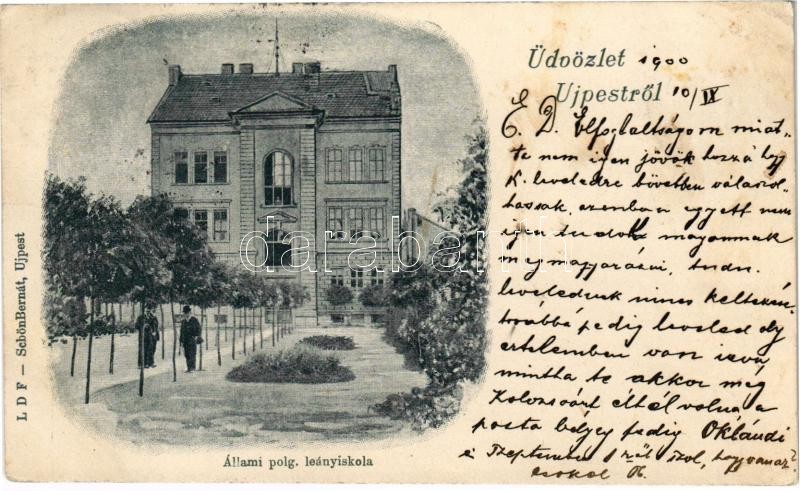 Üdvözlet 1900
Ujpestről 10/IX
E. D. Elfoglaltságom miat-
ta nem igen jövök hozzá hogy
k. leveledre bővebben válaszol-
hassak, azonban egyett nem
igen tudok magamnak
meg magyarázni, tudn.
levelednek nincs keltezése
továbbá pedig leveled oly
értelemben van irva
mintha te akkor még
Kolozsvárt éltél volna a
posta bélyeg pedig Oklándi
Szeptember 1 ről szol, hogy van az?
csokol
LDF – Schön Bernát, Ujpest
Állami polg. leányiskola
darabanth